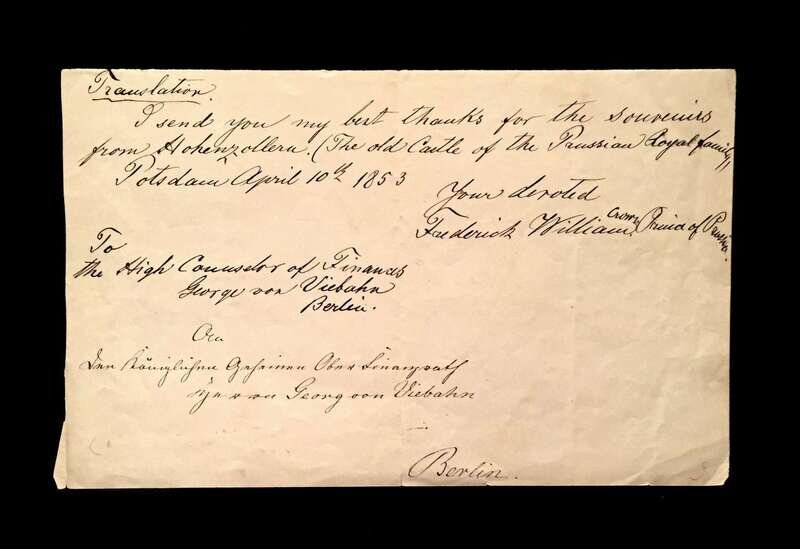 Translation.
I send you my best thanks for the souvenirs
from Hohenzollern. (The old Castle of the Prussian Royal family)
Potsdam April 10th 1853
Your devoted
Frederick William, Crown Prince of Prussia.
To
the High Counselor of Finances
George von Viebahn
Berlin.
An
den Königlichen Geheimen Ober Finanzrath
Herrn Georg von Viebahn
Berlin.